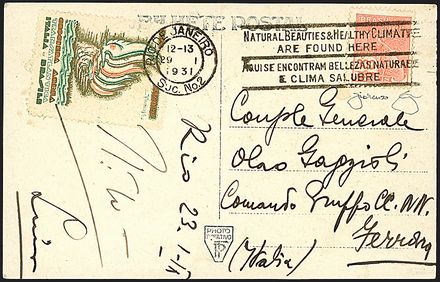 BILHETE POSTAL
CROCIERA AEREA
TRANSATLANTICA
ITALIA BRASILE
RIO DE JANEIRO
12-13
29 I
1931
Suc. No. 2
NATURAL BEAUTIES & HEALTHY CLIMATE
ARE FOUND HERE
AQUI SE ENCONTRAM BELLEZAS NATURAES
E CLIMA SALUBRE
BRASIL
Generale
Comando Gruppo CC. NN.
Ferrara
(Italia)
Rio 23-1-IX
PHOTO